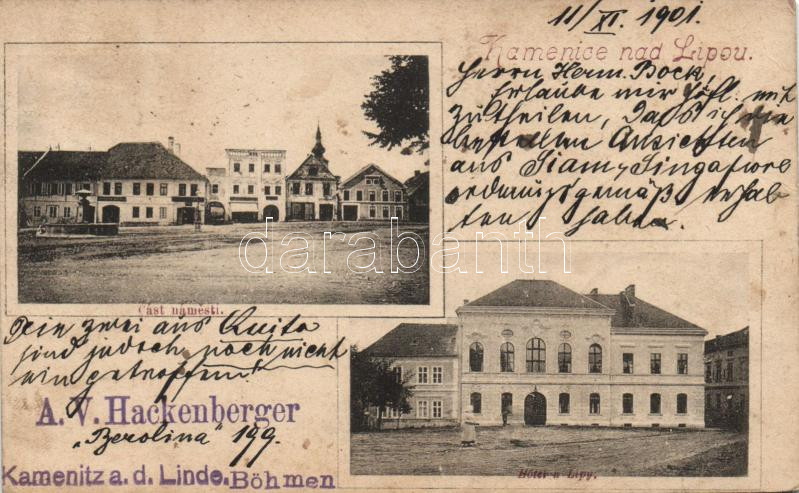 11/XI. 1901.
Kamenice nad Lipou.
Herrn Herm. Bock,
Erlaube mir höfl. mit
zutheilen, dass ich die
bestellten Ansichten
aus Siam, Singapore
ordnungsgemäß erhal
ten habe.
darabanth.com
Část náměstí.
Die zwei aus Quito
sind jedoch noch nicht
eingetroffen!
A. V. Hackenberger
"Berolina" 199.
Kamenitz a. d. Linde. Böhmen
Hôtel u Lípy.